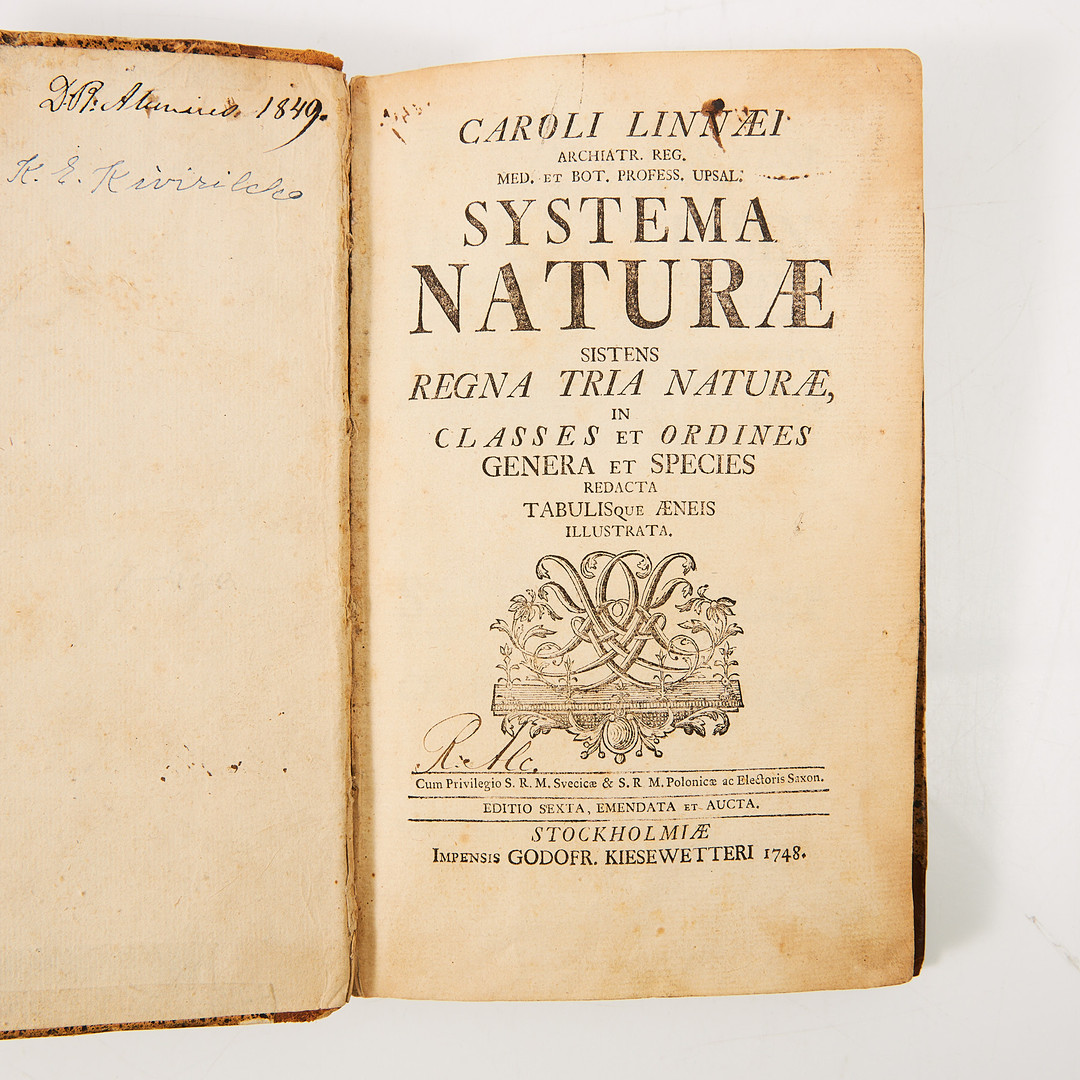 1849.
K. E. Kivirikko
CAROLI LINNÆI
ARCHIATR. REG.
MED. ET BOT. PROFESS. UPSAL.
SYSTEMA
NATURÆ
SISTENS
REGNA TRIA NATURÆ,
IN
CLASSES ET ORDINES
GENERA ET SPECIES
REDACTA
TABULISQUE ÆNEIS
ILLUSTRATA.
Cum Privilegio S. R. M. Svecicæ & S. R M. Polonicæ ac Electoris Saxon.
EDITIO SEXTA, EMENDATA ET AUCTA.
STOCKHOLMIÆ
IMPENSIS GODOFR. KIESEWETTERI 1748.